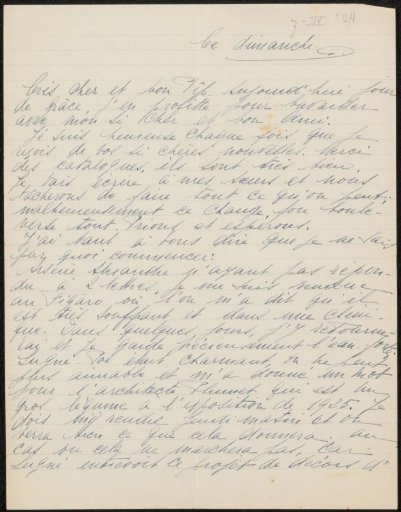 7-II '24
Ce dimanche
Très cher et bon Pip, aujourd'hui jour
de grâce j'en profite pour bavarder
avec mon si cher et bon ami.
Je suis heureuse chaque fois que je
reçois de vos si chères nouvelles. Merci
des catalogues, ils sont très bien.
Je vais écrire à mes sœurs et nous
tâcherons de faire tout ce qu'on peut,
malheureusement ce change fou boule-
verse tout. Prions et espérons.
J'ai tant à vous dire que je ne sais
par quoi commencer.
Arsène Alexandre n'ayant pas répon-
du à 2 lettres, je me suis rendue
au Figaro où l'on m'a dit qu'il
est très souffrant et dans une clini-
que. Dans quelques jours, j'y retourne-
rai et je garde précieusement l'eau-forte.
Lugné-Poë était charmant, on ne peut
plus aimable et m'a donné un mot
pour l'architecte Plumet qui est un
gros légume à l'exposition de 1925. Je
dois m'y rendre jeudi matin et on
verra bien ce que cela donnera. Au
cas où cela ne marchera pas, car
Lugné entrevoit ce projet de décors d'